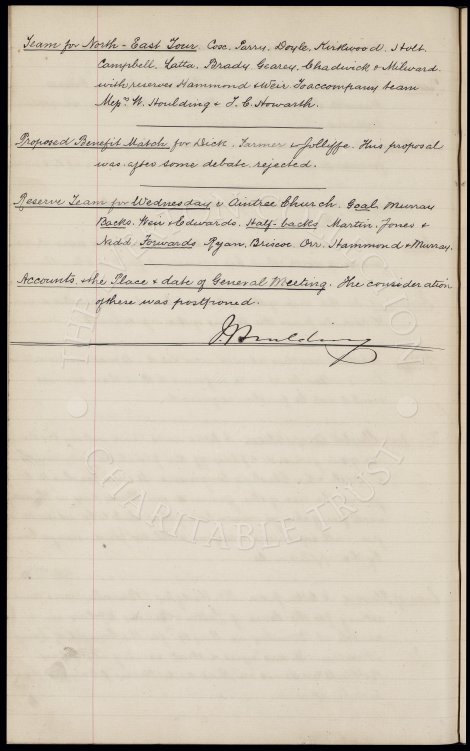 Team for North-East Tour. Cox. Parry. Doyle, Kirkwood. Holt.
Campbell. Latta. Brady. Geary. Chadwick & Milward.
with reserves Hammond & Weir. To accompany team
Messrs W. Houlding & T. C. Howarth.
Proposed Benefit Match for Dick. Farmer & Jolliffe. This proposal
was after some debate rejected.
Reserve Team for Wednesday v Aintree Church. Goal. Murray
Backs. Weir & Edwards. Half-backs Martin. Jones &
Nidd. Forwards Ryan, Briscoe. Orr. Hammond & Murray.
Accounts & the Place & date of General Meeting. The consideration
of these was postponed.
J. Houlding
THE COLLECTION
CHARITABLE TRUST